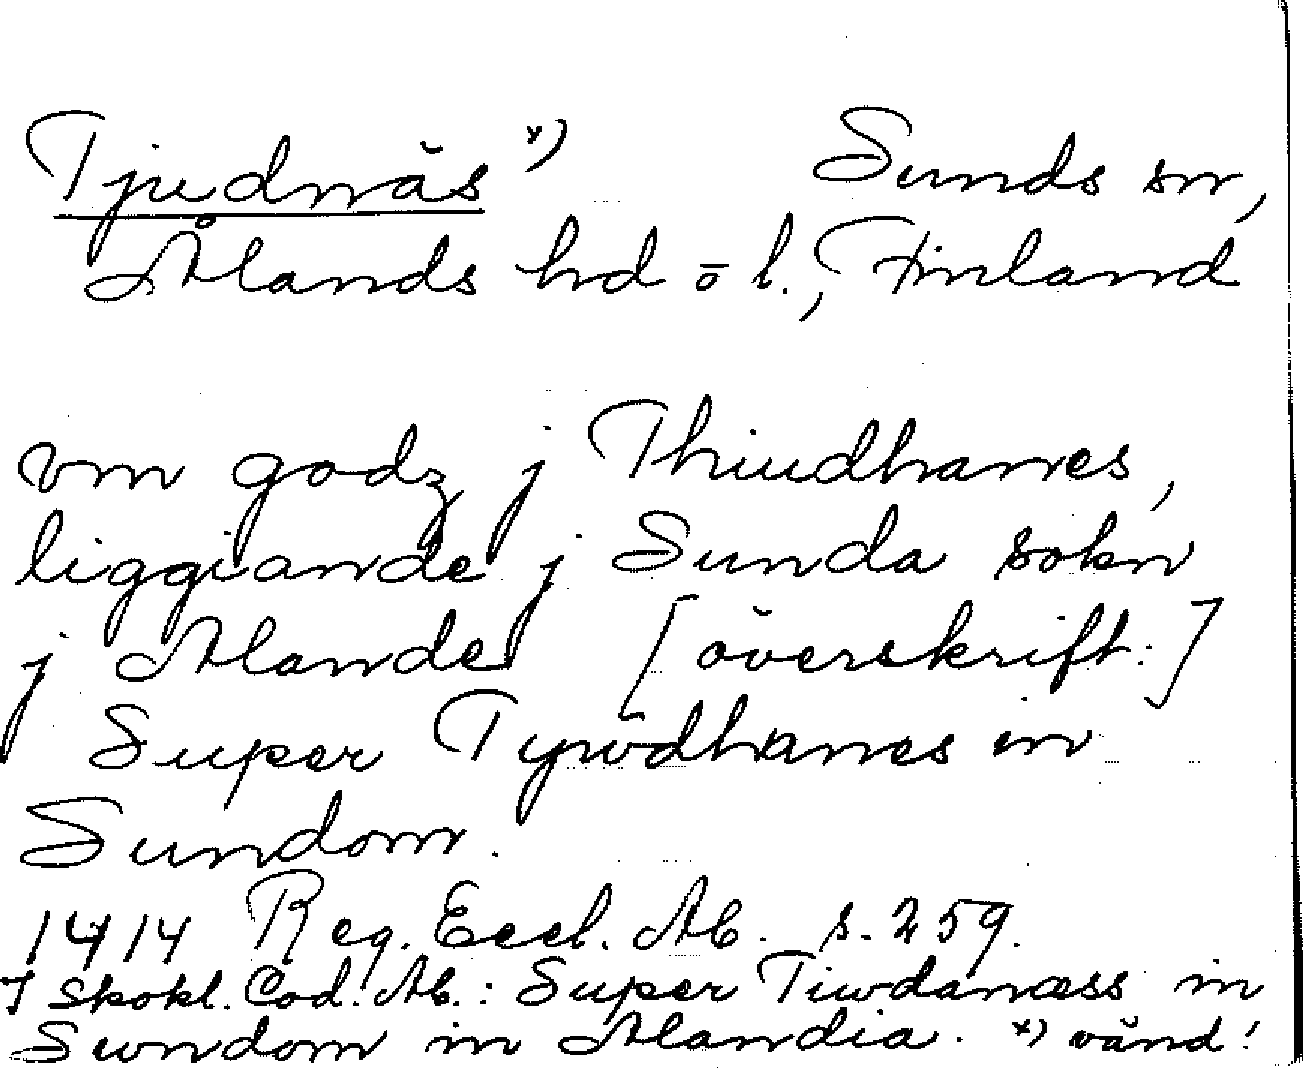 Tjudnäs *) Sunds sn,
Ålands hd o l., Finland
vm godz j Thiudhanes,
liggiande j Sunda sokn
j Alande [överskrift:]
Super Tywdhanes in
Sundom.
1414 Reg. Eccl. Ab. s. 259.
I Skokl. Cod. Ab.: Super Tiwdanæss in
Swndom in Alandia. *) vänd!